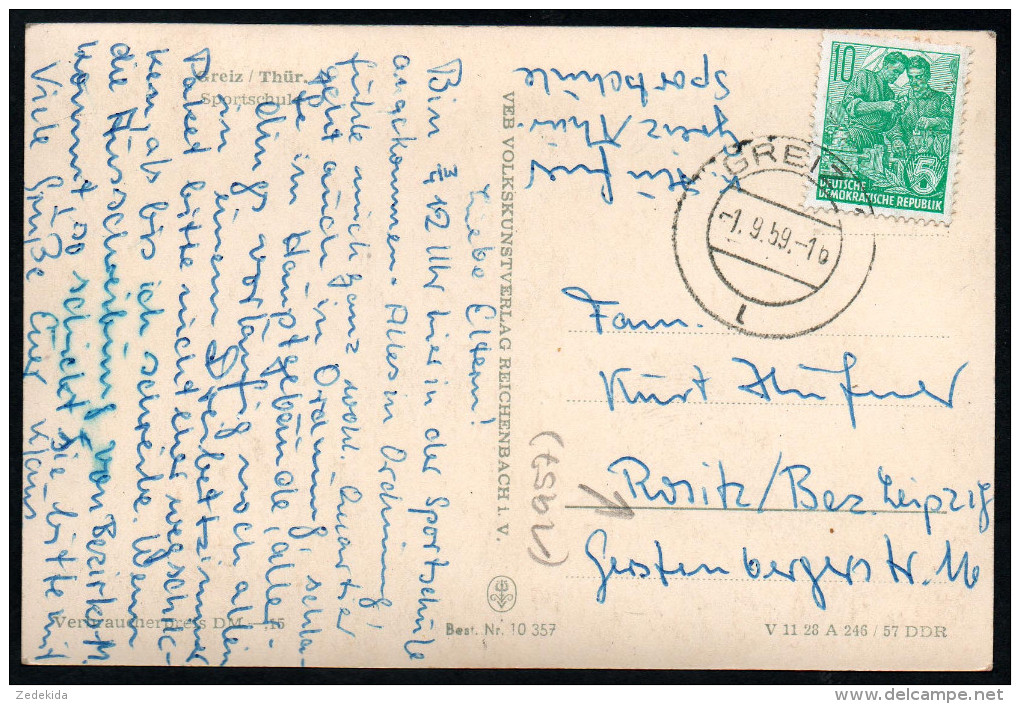 Greiz / Thür.
Sportschule
Liebe Eltern!
Bin 3/4 12 Uhr hier in der Sportschule
angekommen. Alles in Ordnung!
Fühle mich ganz wohl. Quartier
geht auch in Ordnung, schla-
fe im Hauptgebäude, aller-
dings vorläufig noch allein
in einem Dreibettzimmer
Paket bitte nicht eher wegschic-
ken, als bis ich schreibe. Wenn
die Ausschreibung von Bezirk M.
kommt so schickt sie bitte mit
Viele Grüße Euer Klaus
Verbraucherpreis DM —,15
VEB VOLKSKUNSTVERLAG REICHENBACH I. V.
Best. Nr. 10 357
Greiz/Thür.
Sportschule
10
5
DEUTSCHE
DEMOKRATISCHE REPUBLIK
GREIZ
-1.9.59.-16
Fam.
Kurt
Rositz/Bez. Leipzig
Gerstenbergerstr. 16
(1957)
V 11 28 A 246 / 57 DDR
Zedekida
www.delcampe.net